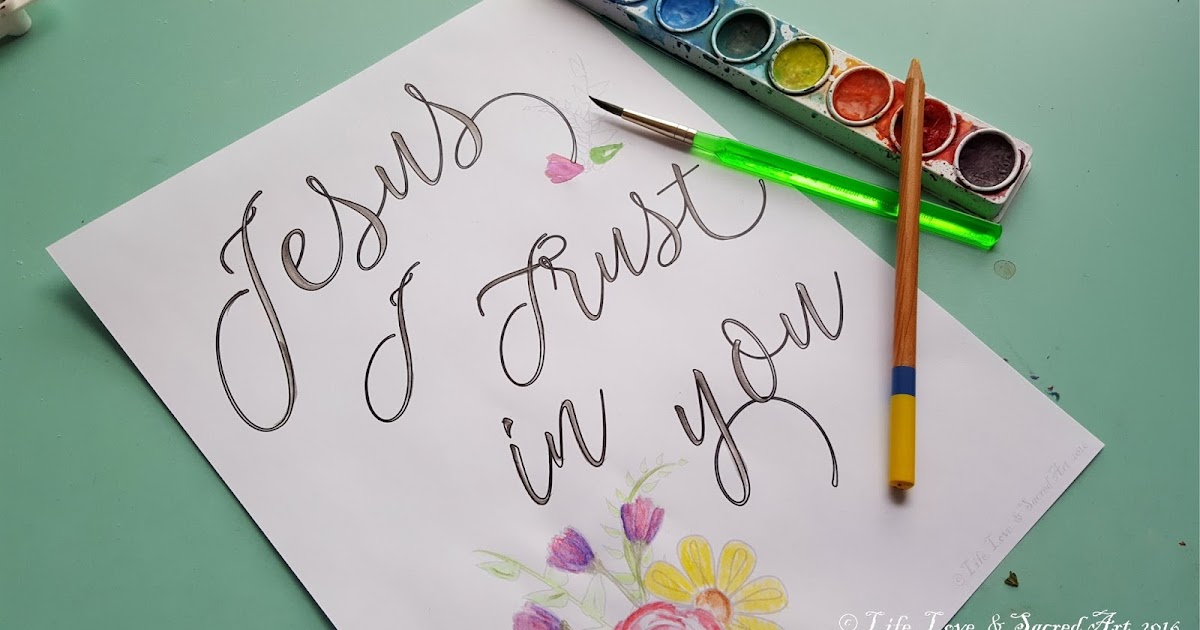 Jesus
I Trust
in you
© Life Love & Sacred Art 2016
© Life Love & Sacred Art 2016